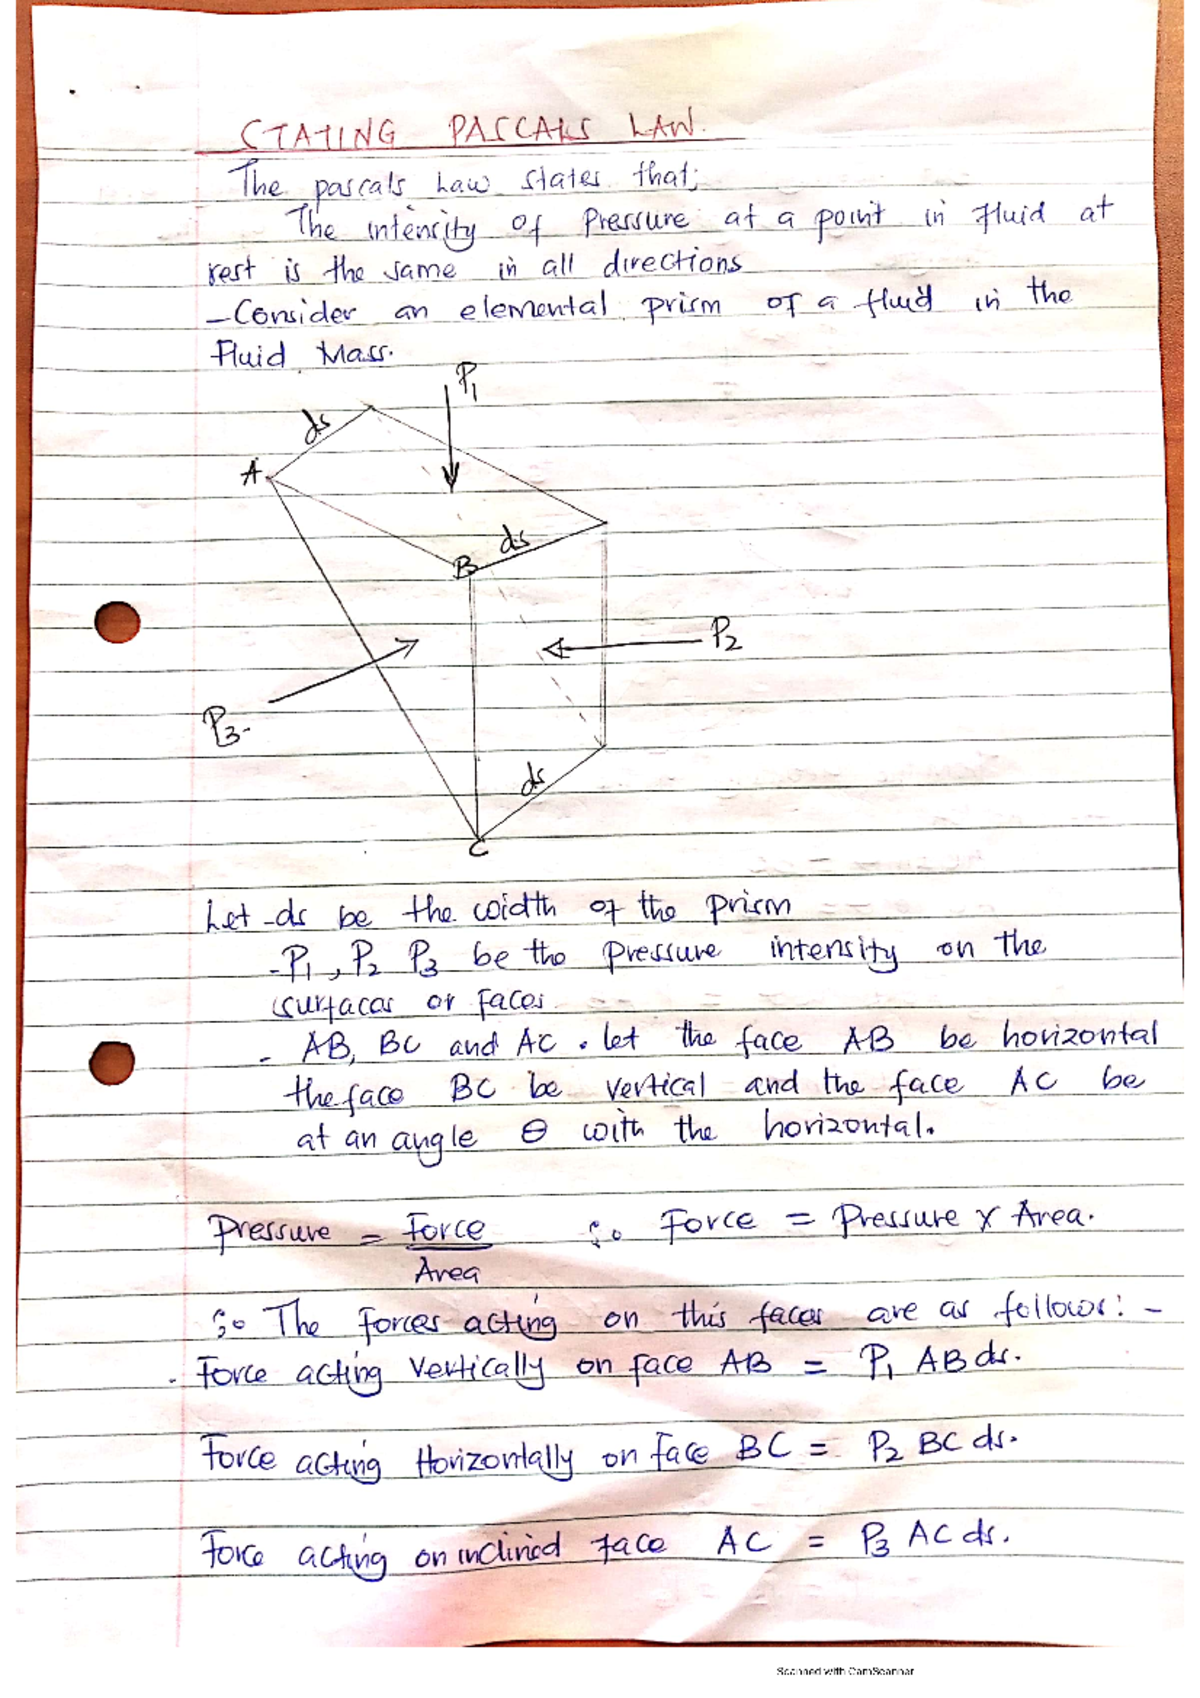 STATING PASCALS LAW.
The pascals Law states that;
The intensity of Pressure at a point in Fluid at
rest is the same in all directions
- Consider an elemental prism of a fluid in the
Fluid Mass.
P1
ds
A
ds
B
P2
P3.
ds
C
Let -ds be the width of the prism
- P1, P2 P3 be the pressure intensity on the
surfaces or faces
- AB, BC and AC. let the face AB be horizontal
the face BC be vertical and the face AC be
at an angle θ with the horizontal.
Pressure = Force / Area ∴ Force = Pressure x Area.
∴ The forces acting on this faces are as follows: -
. Force acting Vertically on face AB = P1 AB ds.
Force acting Horizontally on face BC = P2 BC ds.
Force acting on inclined face AC = P3 AC ds.
Scanned with CamScanner